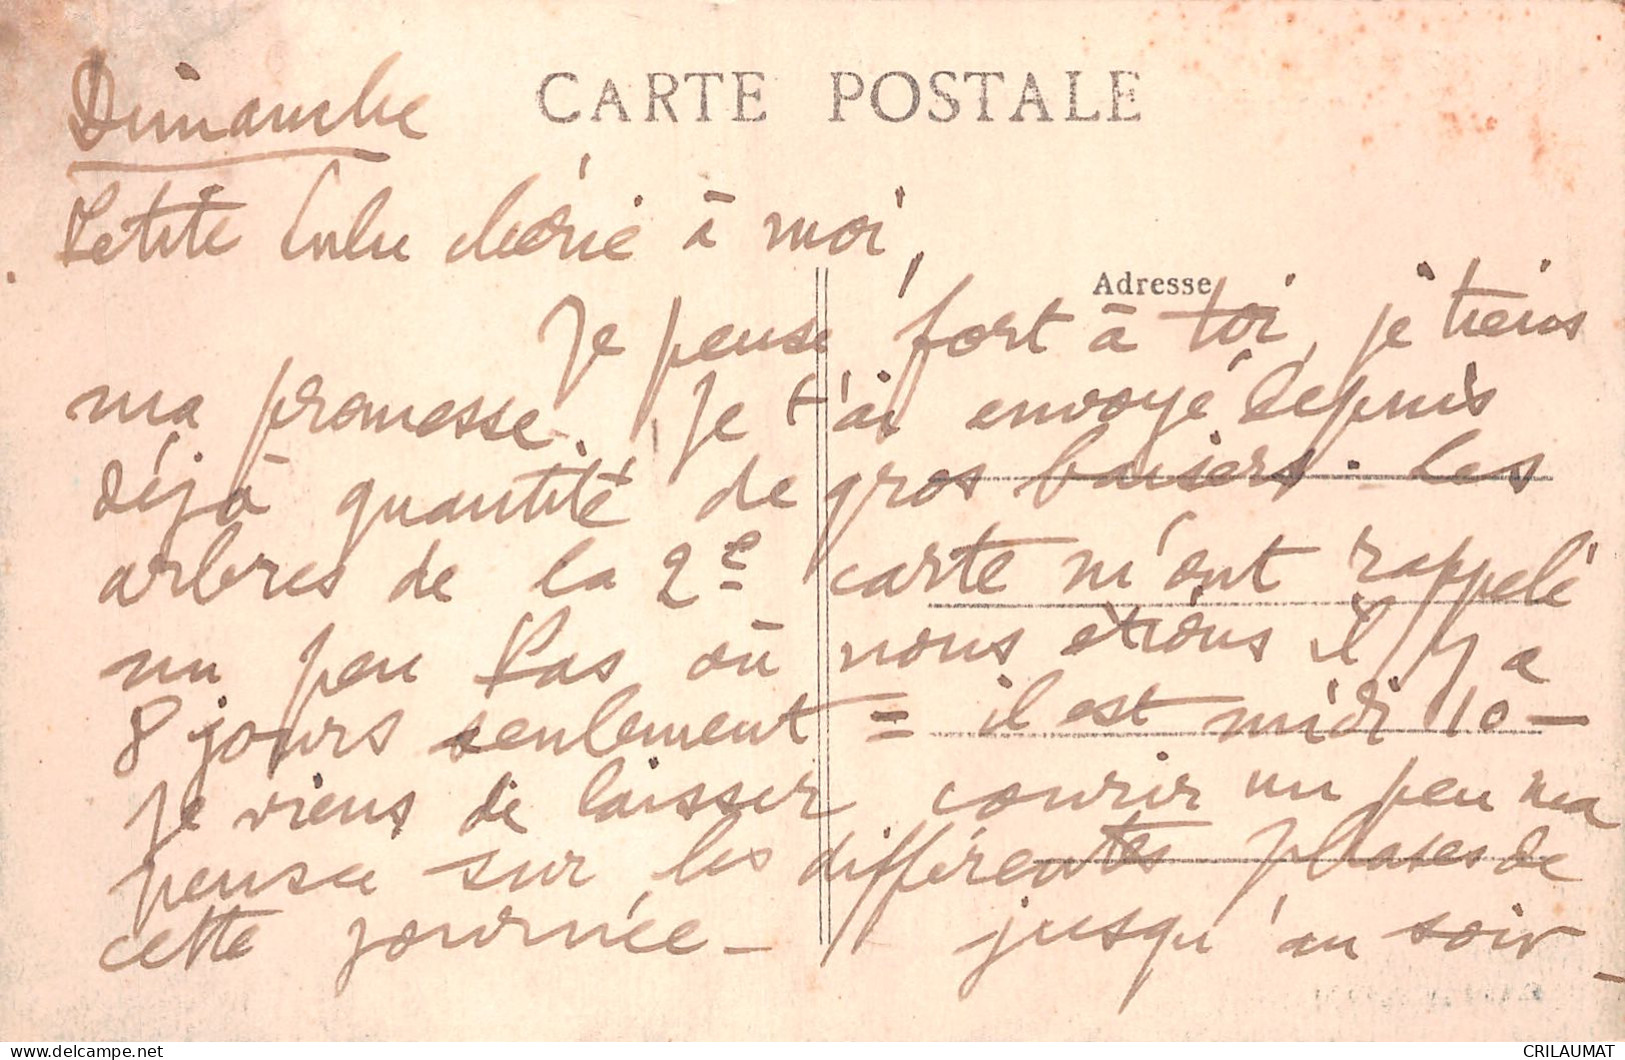 CARTE POSTALE
Dimanche
Petite Lulu chérie à moi,
Adresse
Je pense fort à toi, je tiens
ma promesse. Je t'ai envoyé depuis
déjà quantité de gros baisers. Les
arbres de la 2e carte m'ont rappelé
un peu où nous étions il y a
8 jours seulement = il est midi 10 —
Je viens de laisser courir un peu ma
pensée sur les différentes phases de
cette journée — jusqu'au soir —
CRILAUMAT